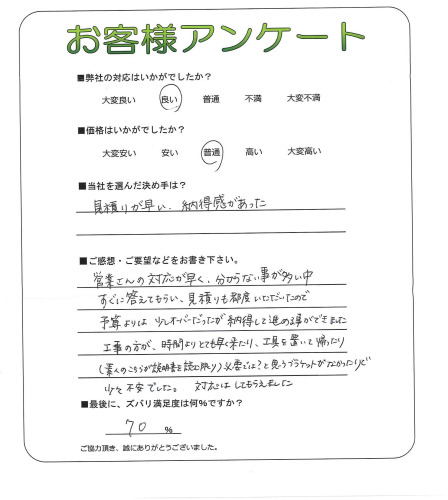 お客様アンケート
■弊社の対応はいかがでしたか?
大変良い 良い 普通 不満 大変不満
■価格はいかがでしたか?
大変安い 安い 普通 高い 大変高い
■当社を選んだ決め手は?
見積りが早い、納得感があった
■ご感想・ご要望などをお書き下さい。
営業さんの対応が早く、分からない事が多い中
すぐに答えてもらい、見積りも都度いただいたので
予算よりは少しオーバーだったが納得して進める事ができました
工事の方が、時間よりとても早く来たり、工具を置いて帰ったり
(素人のこちらが説明書を読む限り)必要では?と思うブラケットがなかったりと
少々不安でした。 対応はしてもらえました
■最後に、ズバリ満足度は何%ですか?
70 %
ご協力頂き、誠にありがとうございました。